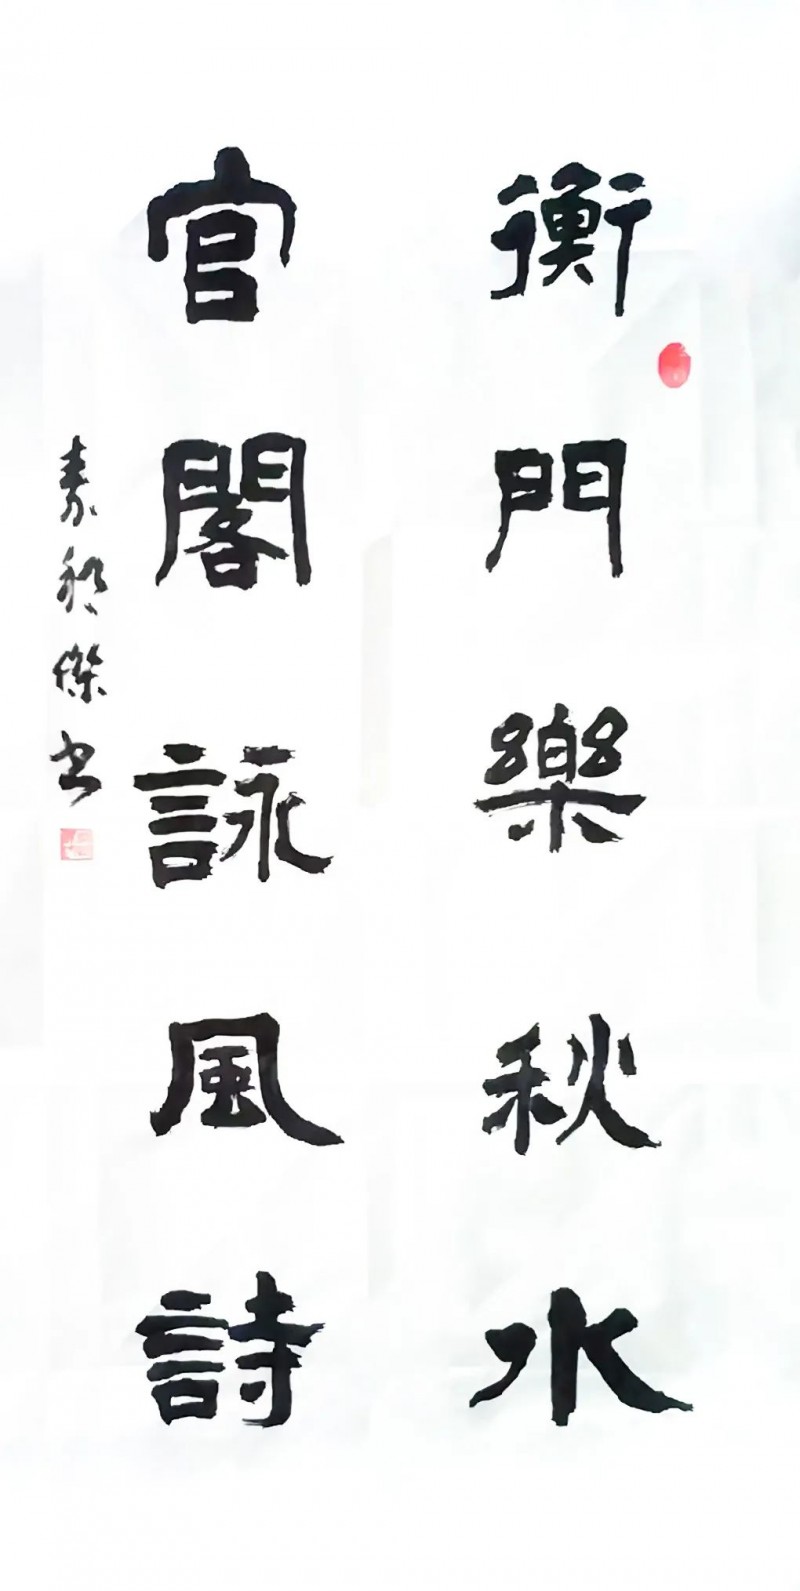 衡門樂秋水
官閣詠風詩
傑書